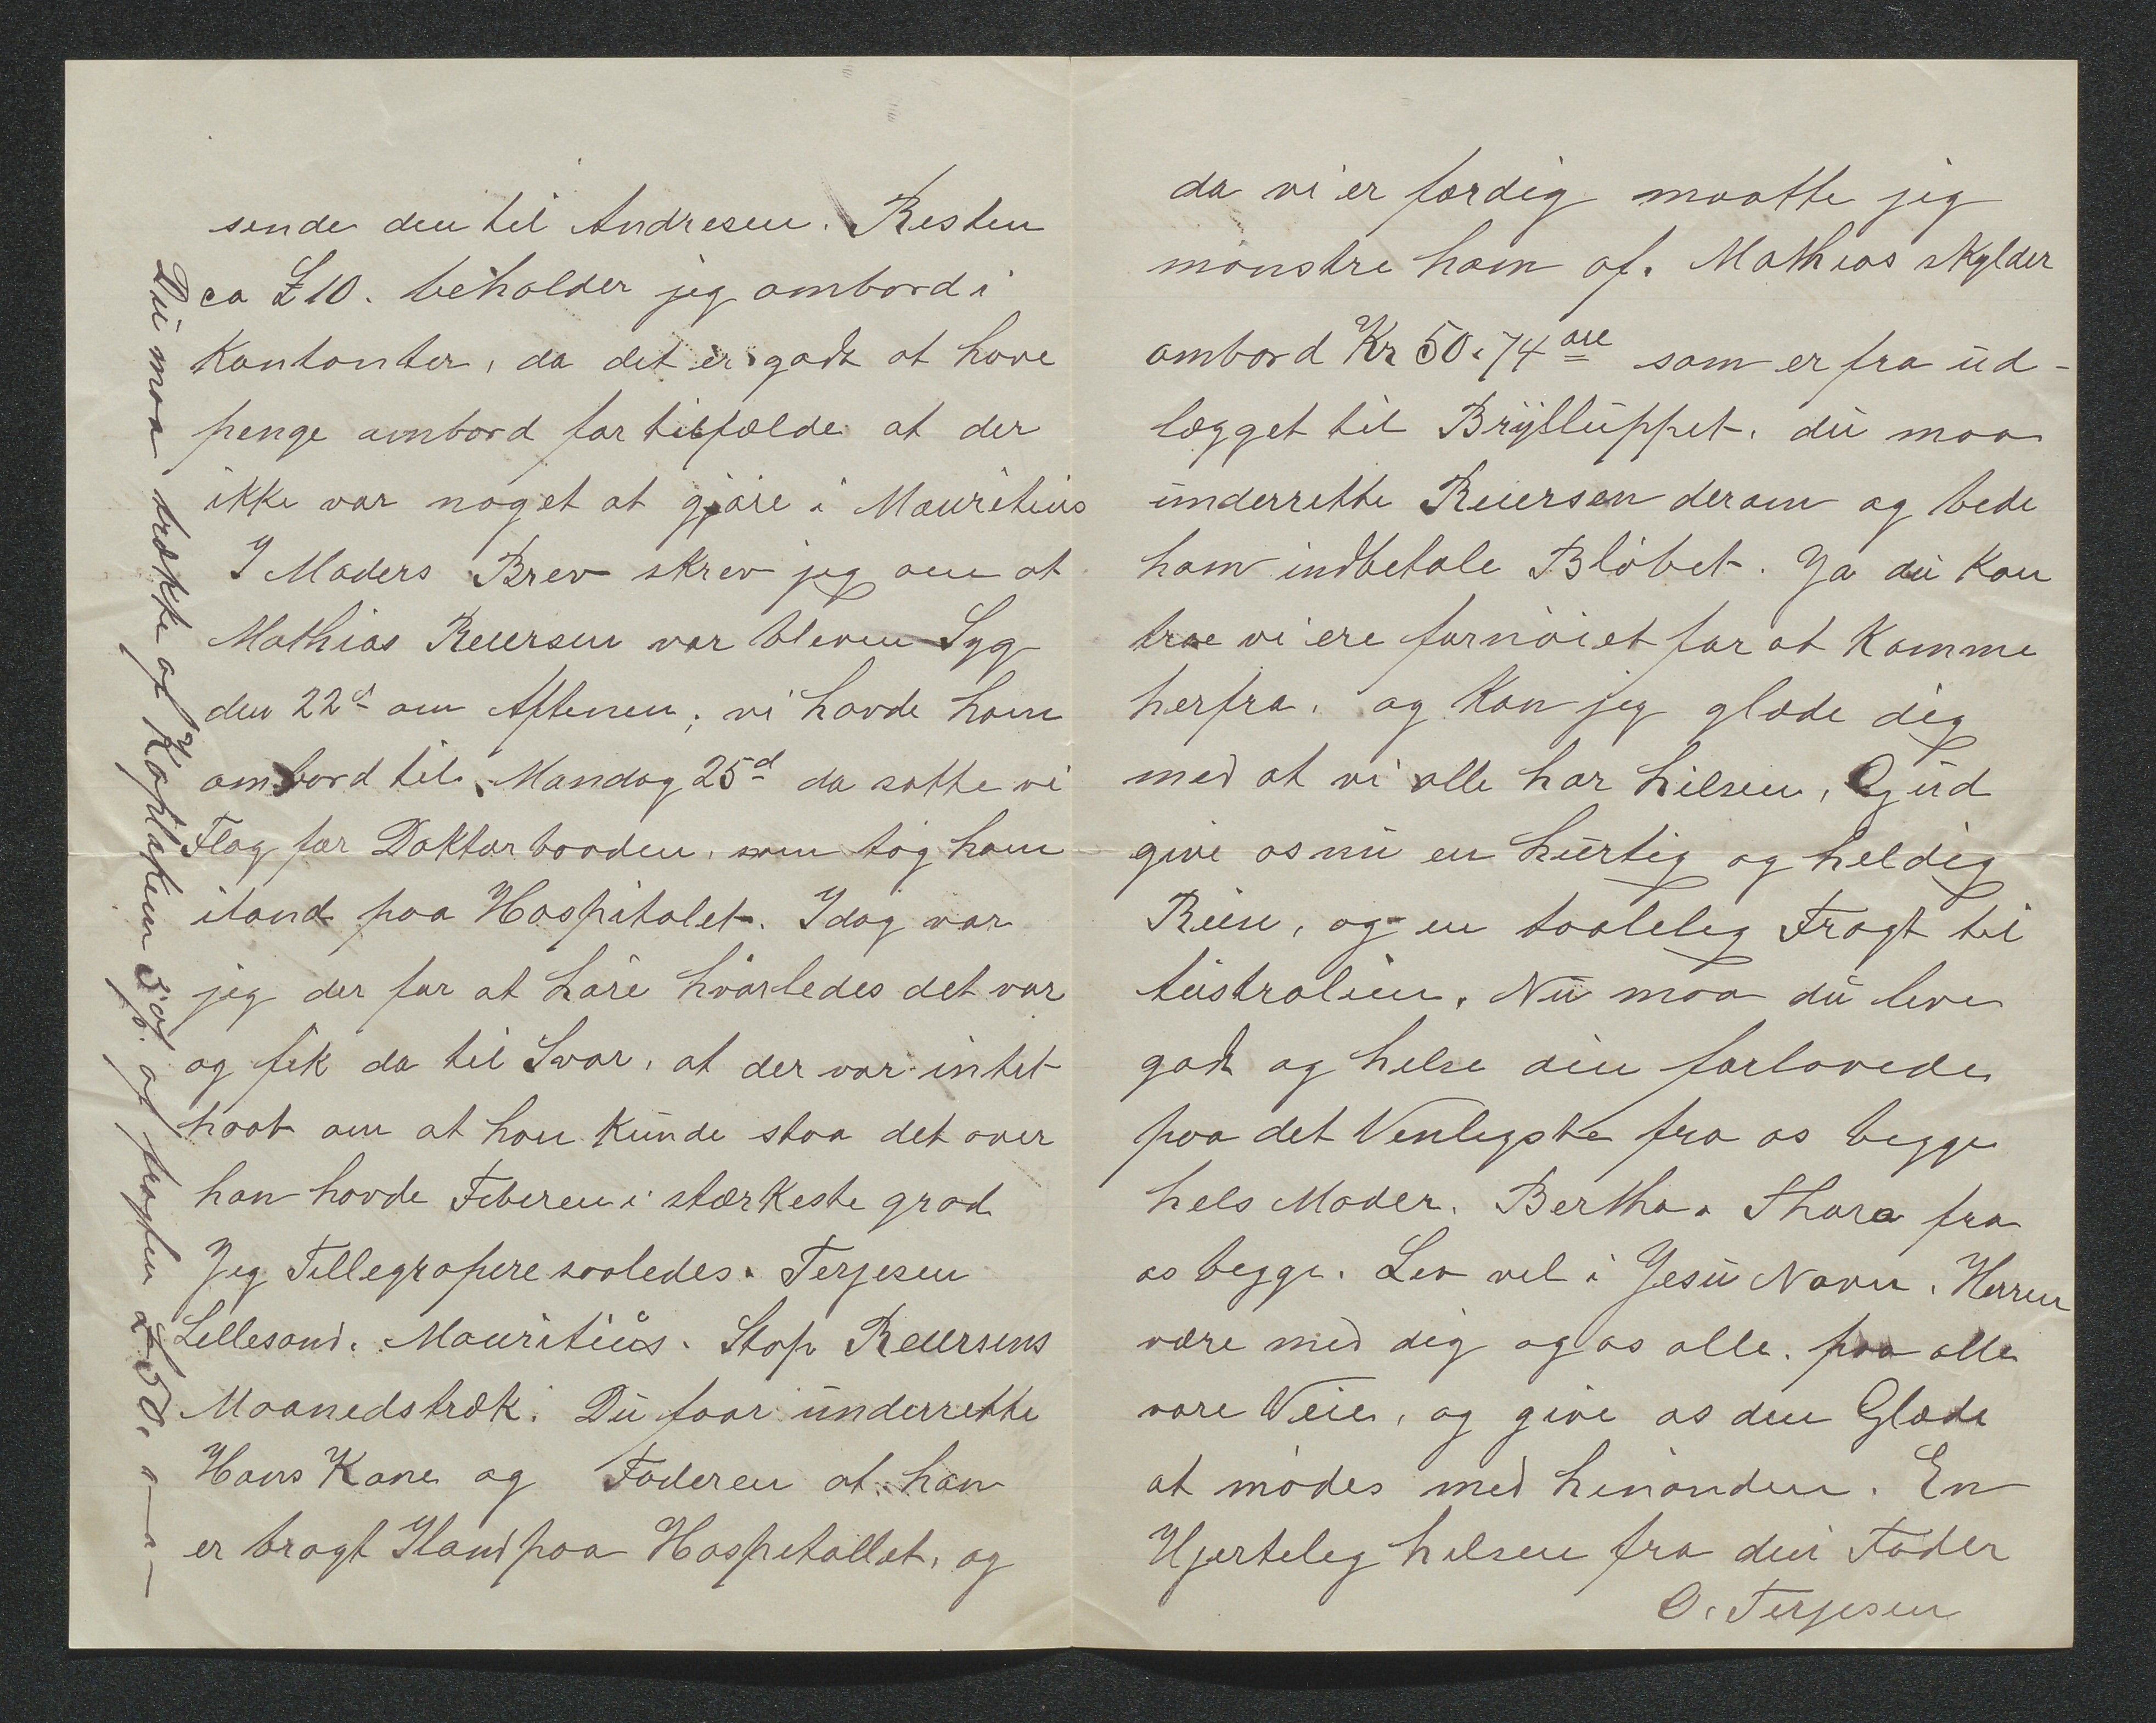 sende den til Andresen. Resten
ca £10. beholder jeg ombord i
Kontanter, da det er godt at have
penge ombord for tilfælde at der
ikke var noget at gjøre i Mauritius
I Moders Brev skrev jeg om at
Mathias Reiersen var bleven Syg
den 22d om Aftenen, vi havde ham
ombord til Mandag 25d da satte vi
Flag for Doktorbaaden, som tog ham
iland paa Hospitalet. Idag var
jeg der for at høre hvorledes det var
og fik da til Svar, at der var intet
haab om at han Kunde staa det over
han havde Feberen i stærkeste grad
Jeg Tellegrafere saaledes. Terjesen
Lillesand. Mauritius. Stop Reiersens
Maanedstræk. Du faar underrette
Hans Kone og Faderen at han
er bragt Iland paa Hospitallet, og
Du maa trække af Kaplaken 5% af fragten £50.
da vi er færdig maatte jeg
mønstre ham af. Mathias skylder
ombord Kr 50.74 øre som er fra ud-
lægget til Brylluppet. du maa
underrette Reiersen derom og bede
ham indbetale Bløbet. Ja du Kan
troe vi ere fornøiet for at Komme
herfra, og Kan jeg glæde dig
med at vi alle har hilsen, Gud
give os nu en hurtig og heldig
Reise, og en taalelig Fragt til
Australien. Nu maa du leve
godt og helse din forlovede
paa det Venligste fra os begge
hels Moder. Bertha. Thora fra
os begge. Lev vel i Jesu Navn. Herren
være med dig og os alle. paa alle
vore Veie, og give os den Glæde
at mødes med hinanden. En
Hjertelig hilsen fra din Fader
O. Terjesen